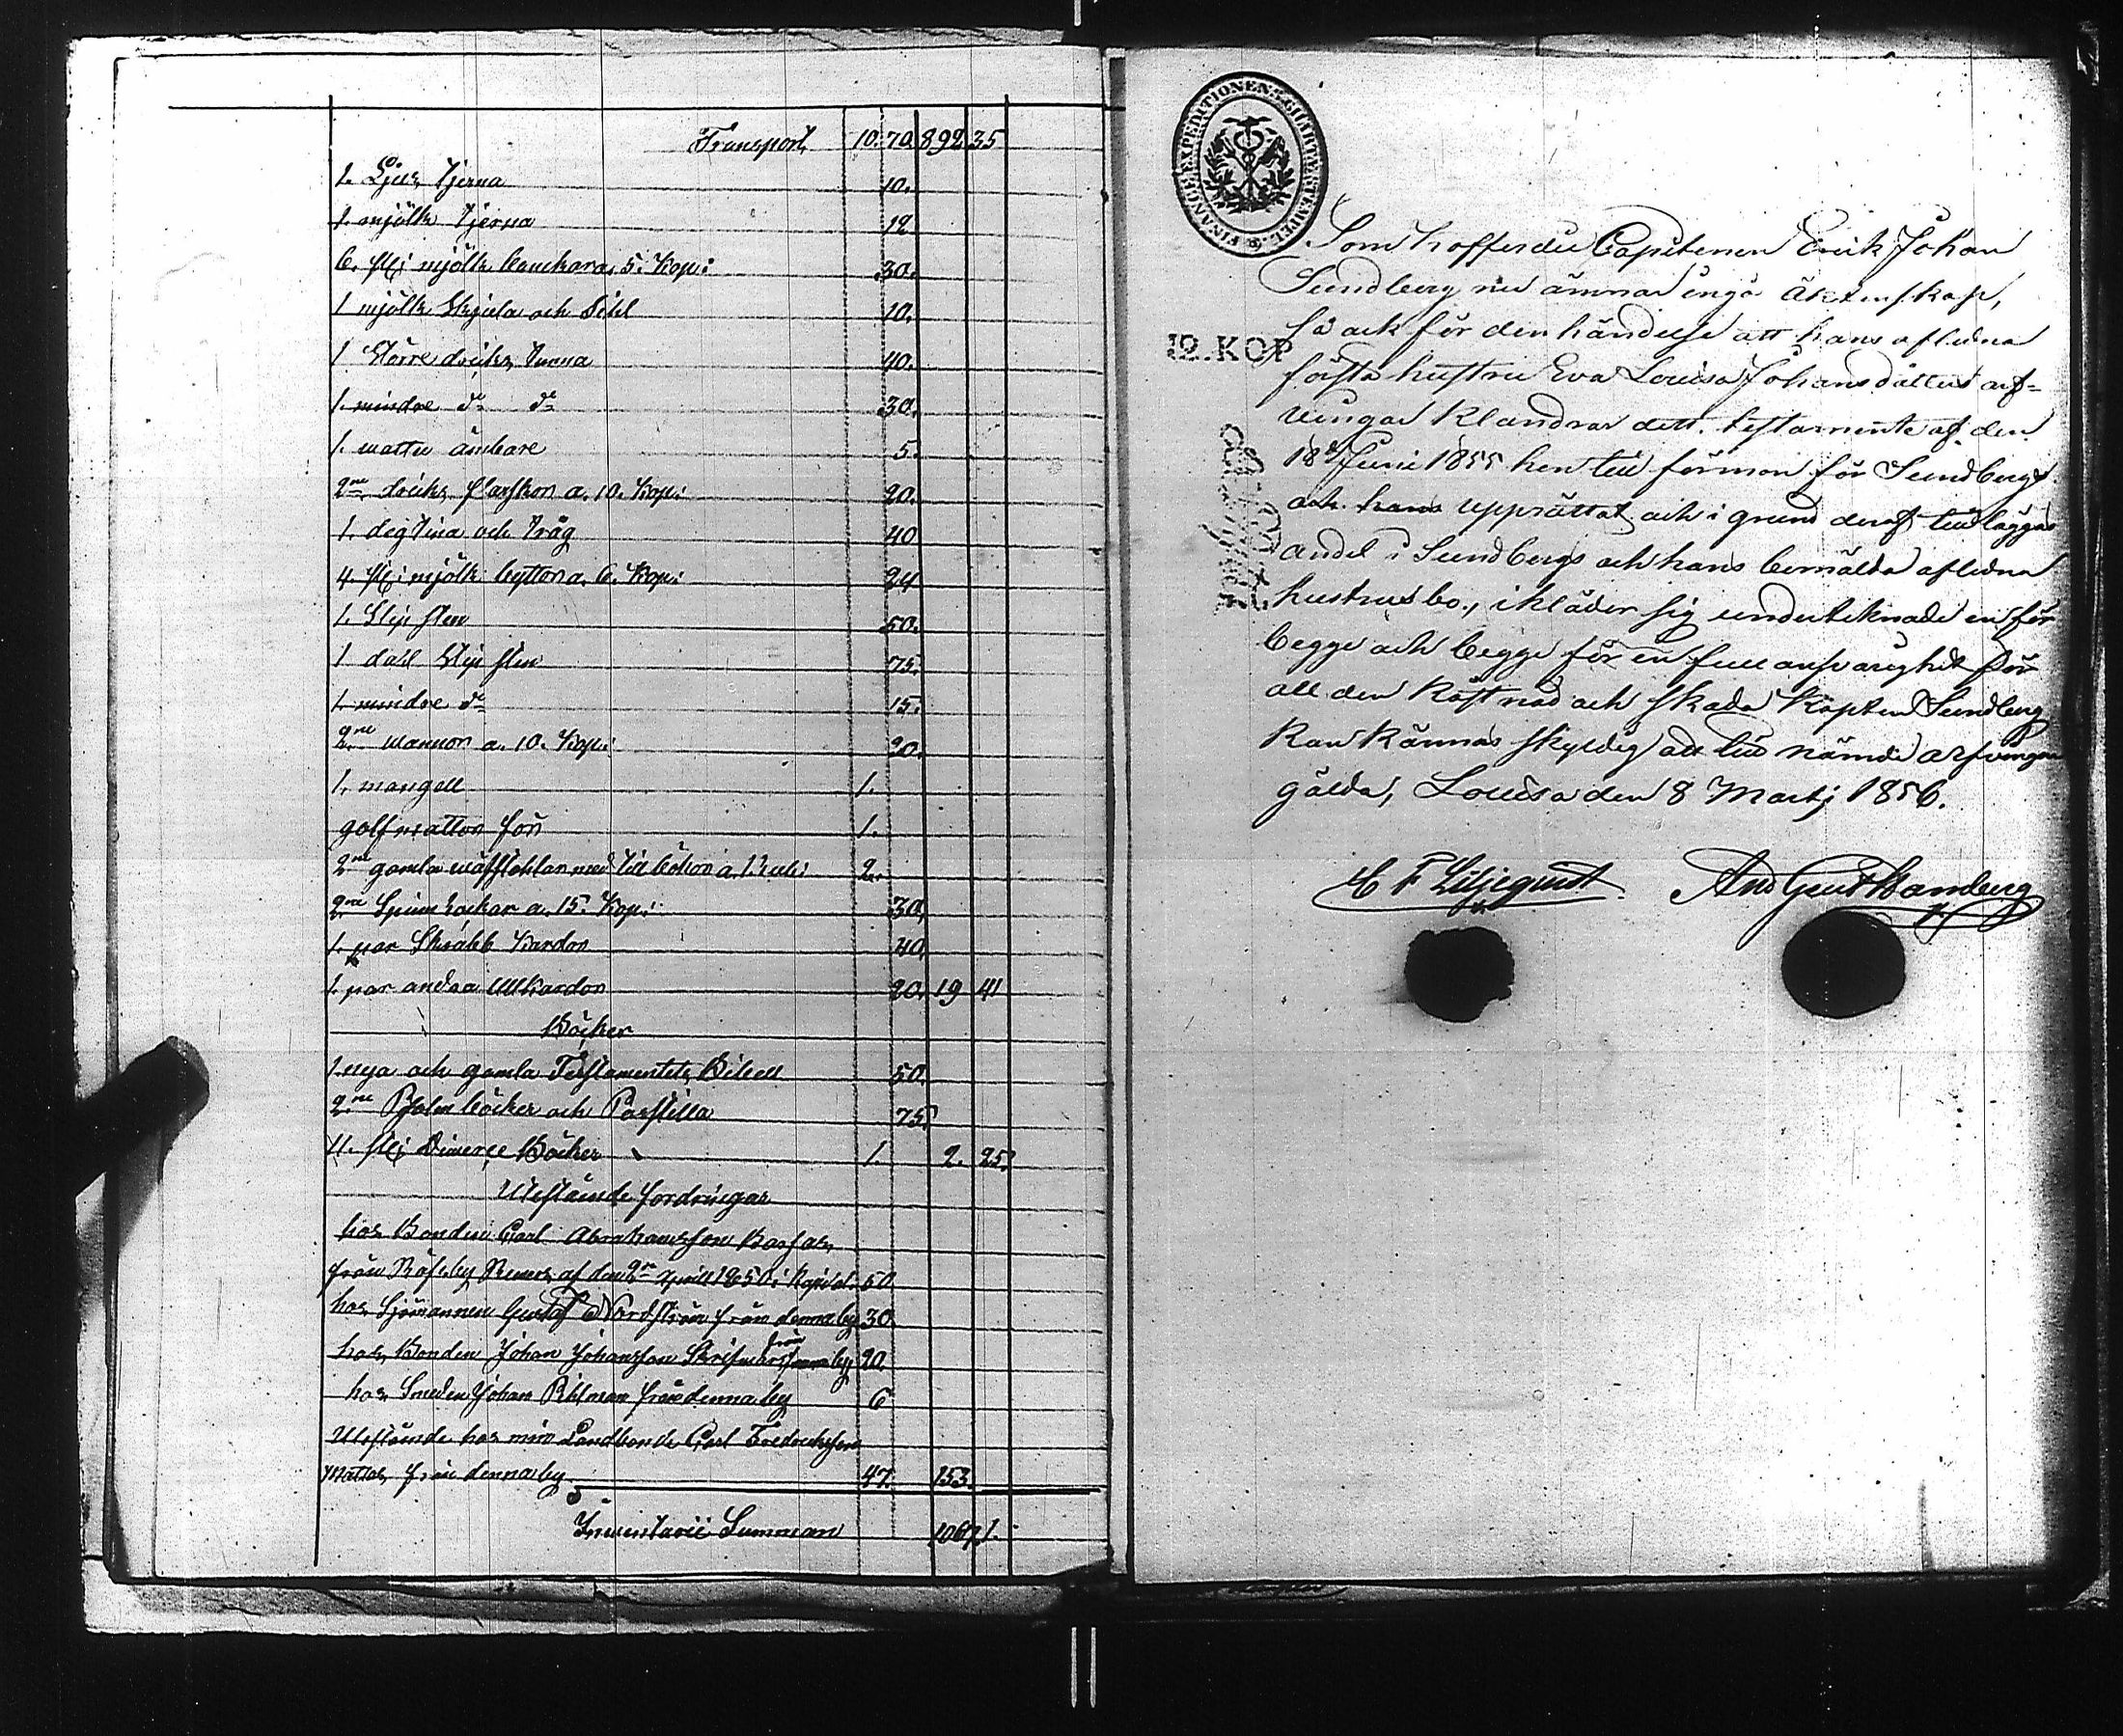 Transport 10. 70. 892 35
1. Ljus Tjerna 10.
1. mjölk Tjerna 12
6. st: mjölk bunkar a. 5. Kop: 30.
1 mjölk Skjula och Sihl 10.
1 Större dricks Tunna 40.
1. mindre do do 30.
1. watten ämbare 5.
2ne dricks flaskor a. 10. Kop: 20.
1. deg Tina och Tråg 40
4. st: mjölk byttor a. 6. Kop: 24
1. Slip sten 50.
1 dahl Slip sten 75.
1. mindre do 15.
2ne wannor a. 10. Kop: 20.
1. mangell 1.
golf mattor för 1.
2ne gamla wäfstohlar med Til behör a. 1 Rub: 2.
2ne Spinn råckar a. 15. Kop: 30.
1. par Skrubb Kardor 40
1. par andra ull Kardor 20. 19 41
Böcker
1. nya och gamla Testamentets Bibell 50.
2ne Psalm böcker och Postilla 75.
11. st: Diverse Böcker 1. 2. 25.
Utestående fordringar
hos Bonden Carl Abrahamsson Bassas
från by Revers af den 2n April 1850 i Kapital 50
hos Sjömannen Gustaf Nordström från denna by 30.
hos Bonden Johan Johansson från by 20.
hos Smeden Johan från denna by 6
Utestående hos min Landbonde Carl Fredricksson
Mattas från denna by 47. 153.
Inventarii Summan 1067. 1.
FINANCE EXPEDITIONENS CHARTÆ STEMPEL
12. KOP
Som Kofferdie Capitenen Erik Johan
Sundberg nu ämnar ingå äktenskap,
så ock för den händelse att hans aflidna
första hustru Eva Lovisa Johansdotters arf-
vingar Klandrar dett testamente af den
18de Juni 1855 hon till förmon för Sundberg
och hans upprättat och i grund deraf tillägger
andel i Sundbergs och hans bemälda aflidna
hustrus bo., ikläder sig undertecknade en för
begge och begge för en full ansvarighet för
all den kostnad och skada Kapten Sundberg
kan kännas skyldig att till nämde arfvingar
gälda, Lovisa den 8 Martj 1856.
C F Liljequist And Gust Hamberg